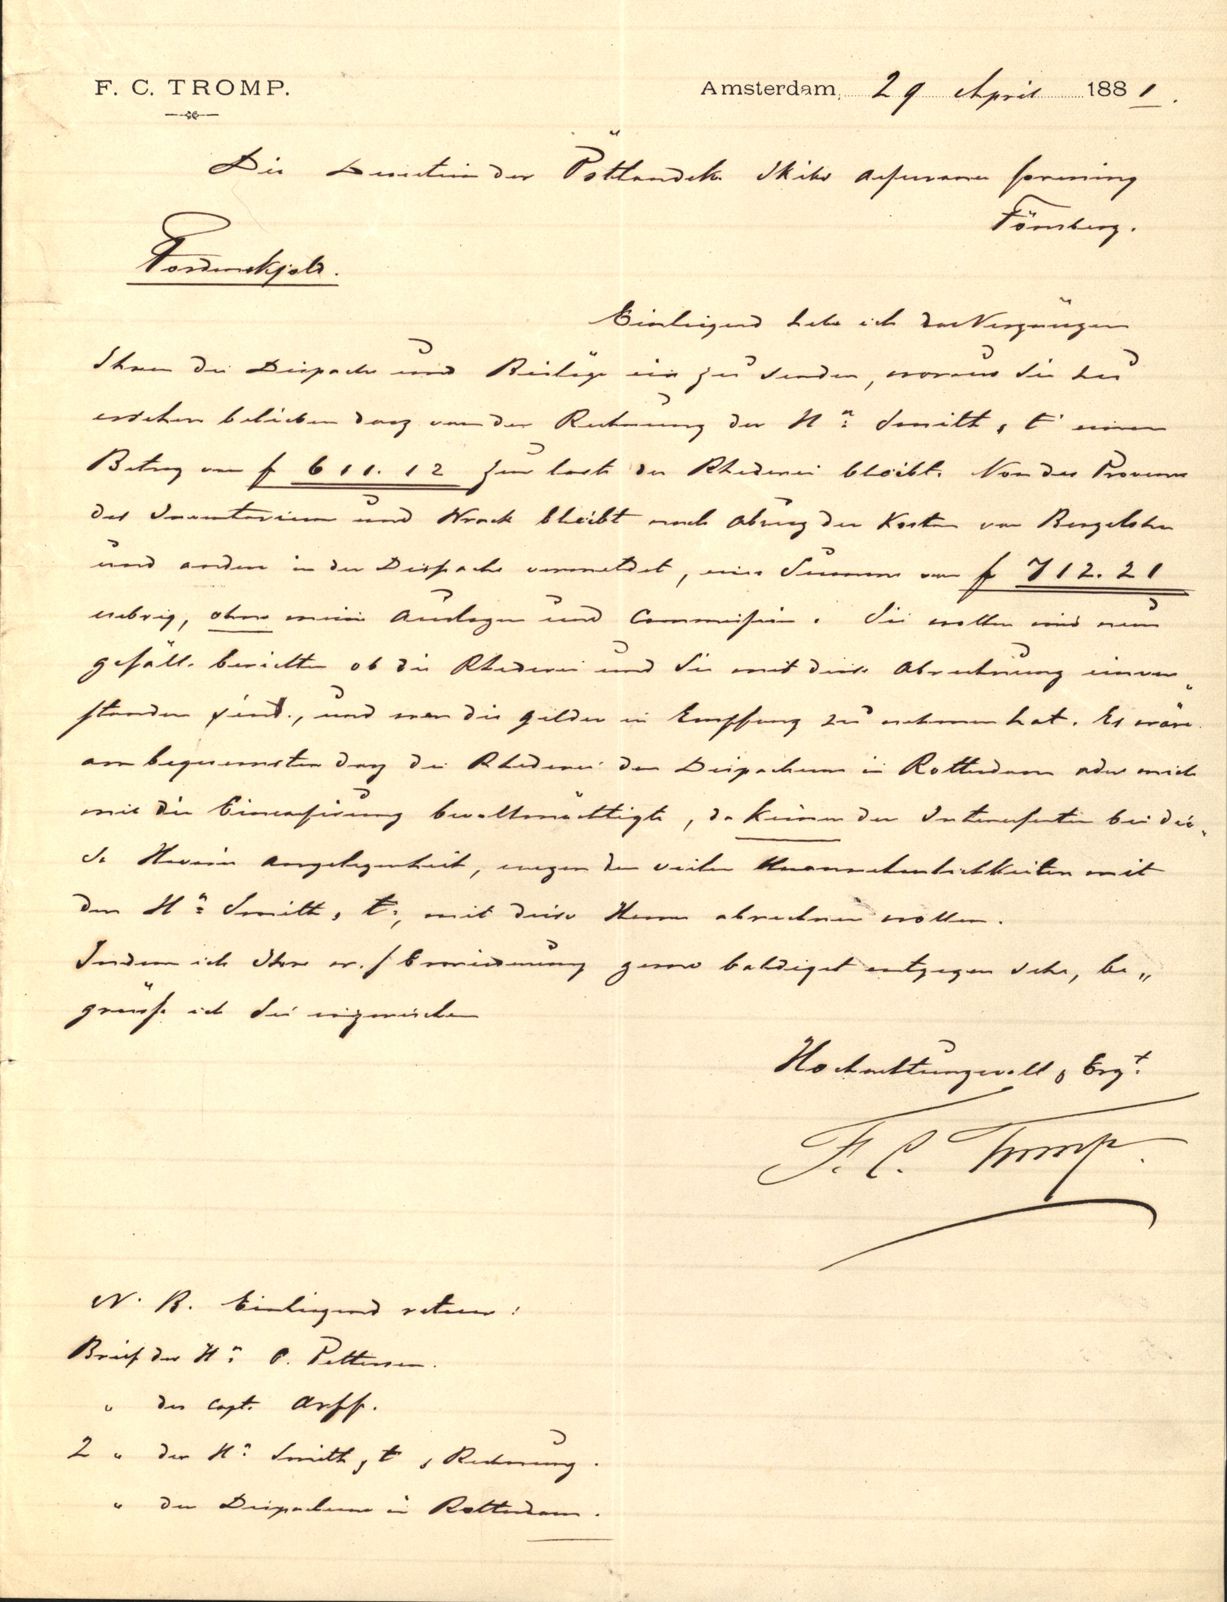 F. C. TROMP.
Amsterdam, 29 April 1881.
Die Direction der Östlandske Skibs Assurance forening
Tönsberg.
Tordenskjold.
Einliegend habe ich das Vergnügen
Ihnen die Dispache und Beiläge ein zu senden, woraus Sie
ersehen belieben dasz von der Rechnung der Hn: Smith & Co einen
Betrag von f 611.12 zur last der Rhederei bleibt. Von der Provenue
des Inventarium und Wrack bleibt nach Abzug der Kosten von Bergelohn
und andere in der Dispache vermeldet, eine Summe von f 712.21
uebrig, ohne meine Auslagen und Commission. Sie wollen mir nun
gefäll. berichten ob die Rhederei und Sie mit diese Abrechnung einver„
standen sind, und wer die gelder in Empfang zu nehmen hat. Es wäre
am bequemsten dasz die Rhederei den Dispacheur in Rotterdam oder mich
mit die Eincassirung bevollmächtigte, da keiner der Interessenten bei die„
se Havarie angelegenheit, wegen den vielen Unannehmlichkeiten mit
den Hn: Smith & Co, mit diese Herren abrechnen wollen.
Indem ich Ihre w. / Erwiederung gerne baldigst entgegen sehe, be„
grüsse ich Sie inzwischen
Hochachtungsvoll & Ergt.
F. C. Tromp.
N. B. Einliegend retour:
Brief der Hn: O. Pettersen.
" des Capt. Arff.
2 " der Hn: Smith & Co & Rechnung.
" des Dispacheur in Rotterdam.